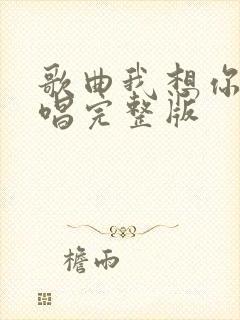 歌曲我想你
唱完整版
檐雨